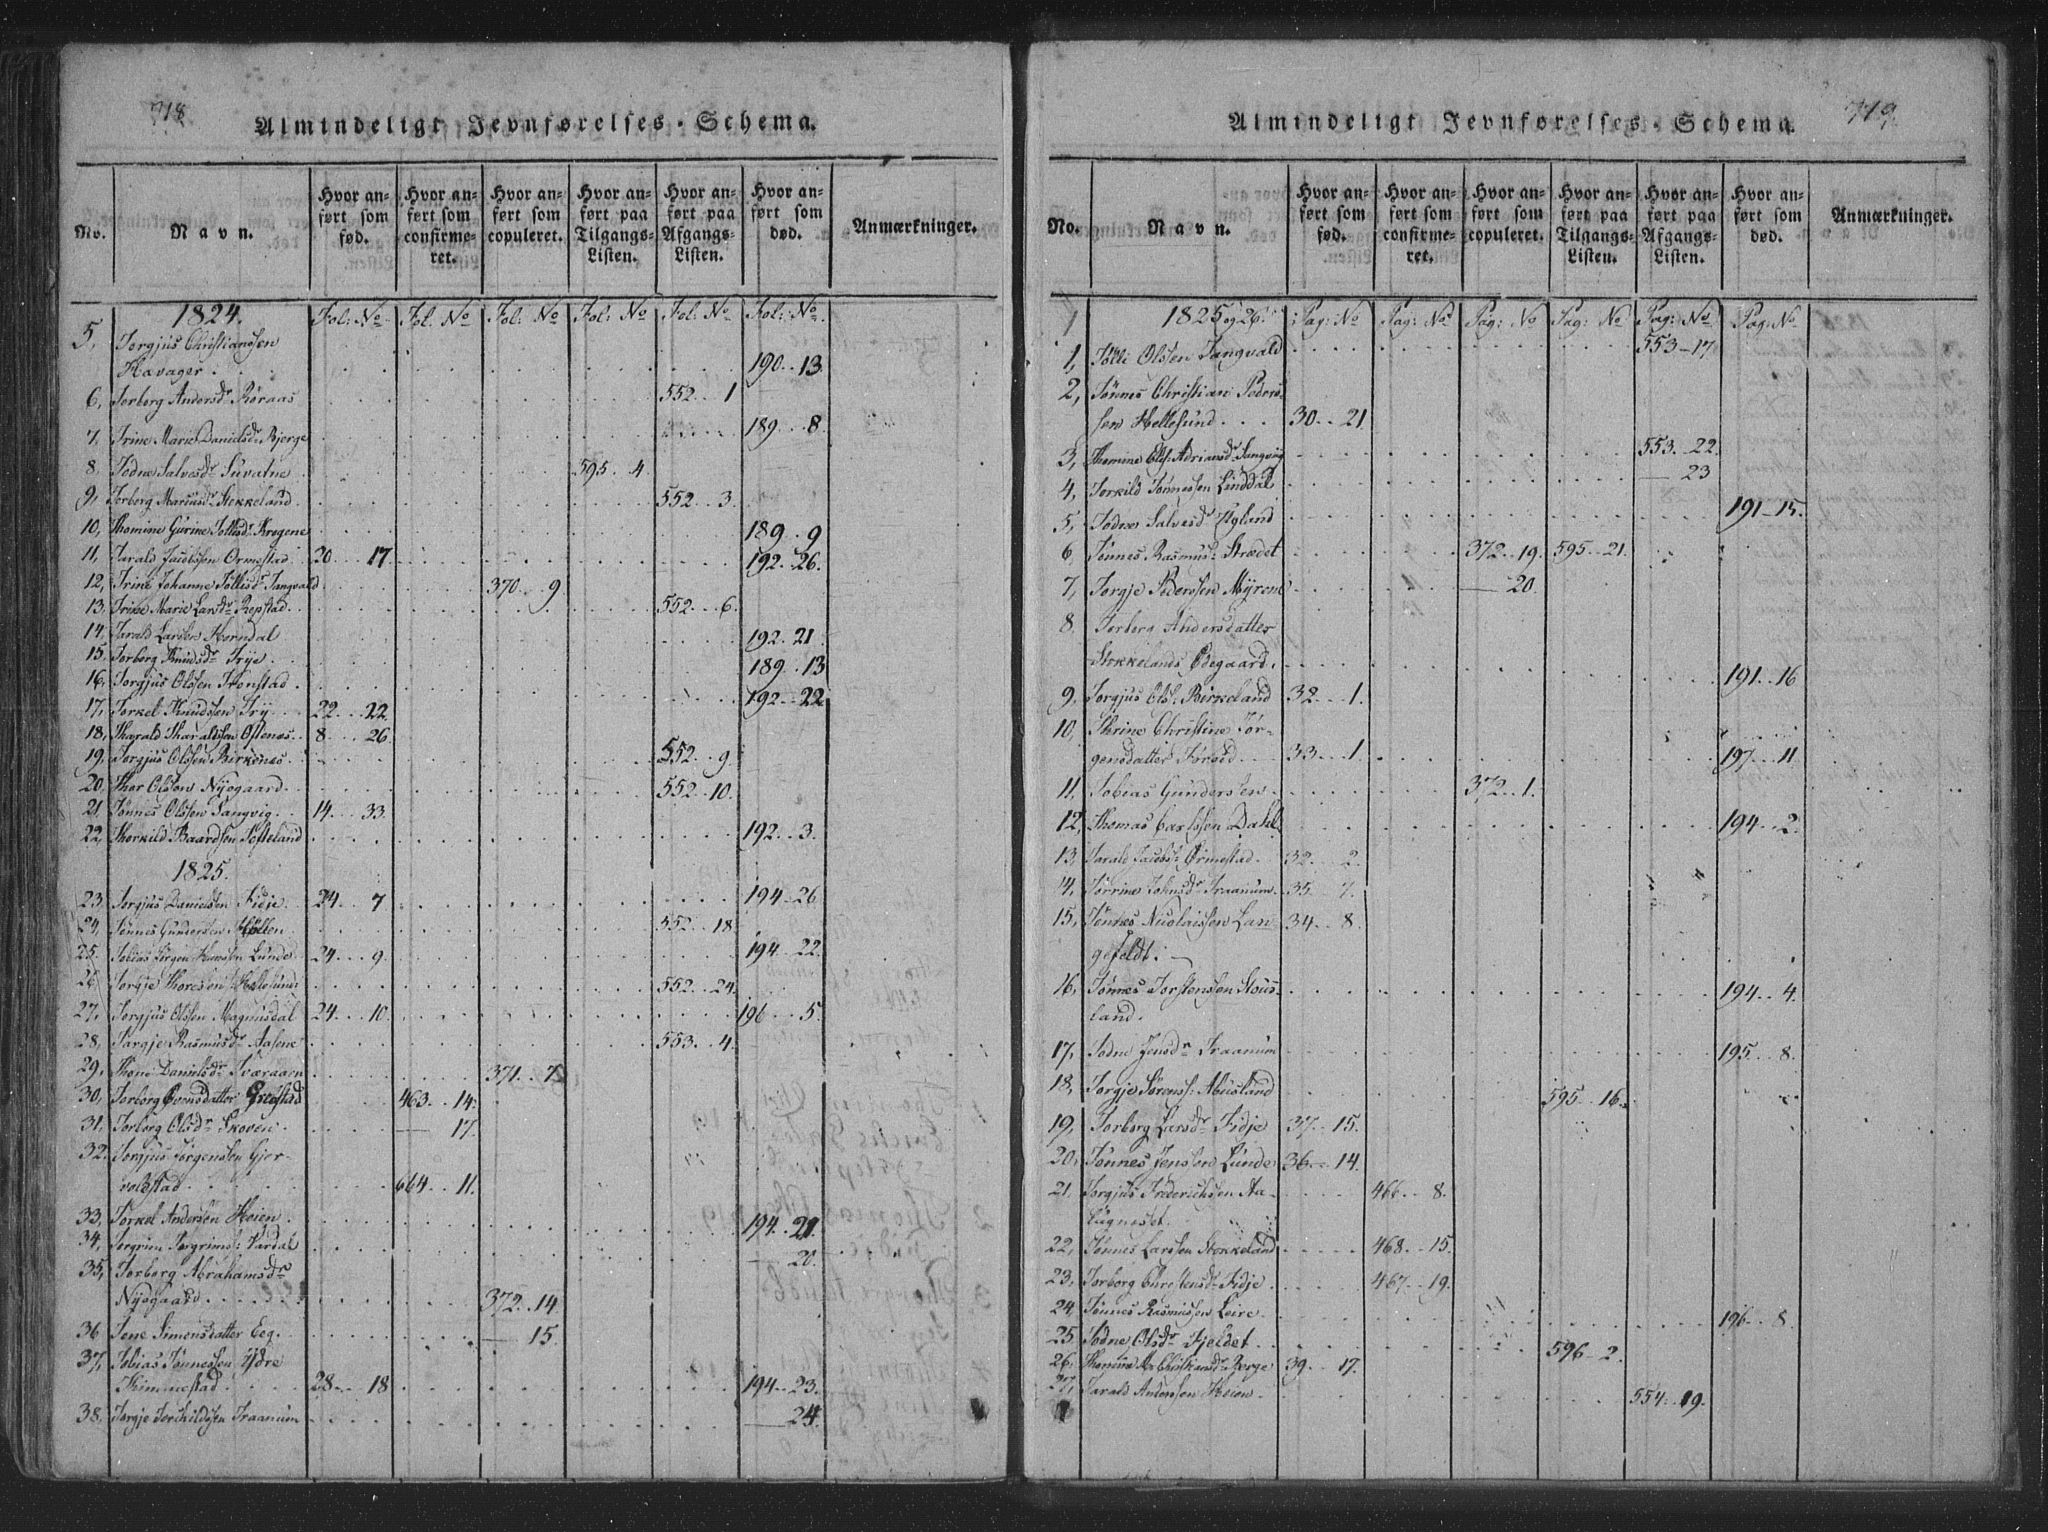 718
Almindeligt Jevnførelses-Schema.
No.
Navn.
Hvor anført som fød.
Hvor anført som confirmeret.
Hvor anført som copuleret.
Hvor anført paa Tilgangs-Listen.
Hvor anført paa Afgangs-Listen.
Hvor anført som død.
Anmærkninger.
1824. Fol: No Fol: No Fol: No Fol: No Fol: No Fol: No
5, Torgjus Christianssen
Havager . . 190 . . 13
6, Torborg Andersdr Røraas 552 . . 1
7, Trine Marie Danielsdr Bjerge 189 . . 8.
8, Todne Salvesdr 595 . . 4.
9, Torborg Mariusdr Stokkeland. 552 . . 3.
10, Thomine Gurine Tollisdr Krogene 189 . . 9
11, Tarald Jacobssen Ormestad. 20 . . 17. 192 . . 26.
12, Trine Johanne Tollisdr Tangvald 370 . . 9
13. Trine Marie Larsdr Repstad. 552 . . 6.
14, Tarald Larsen Horndal 192 . . 21.
15. Torborg Knudsdr Trye . 189 . . 13
16, Torgjus Olssen Tronstad. 192 . . 22.
17, Torkel Knudssen Try. . 22 . . 22.
18, Tharald Tharaldssen Ostenæs. 8 . . 26.
19, Torgjus Olssen Birkenæs. 552 . . 9.
20. Thor Olssen Nyegaard. 552 . . 10.
21. Tønnes Olssen Langvig. 14. . . 33.
22, Thorkild Baardsen Tofteland 192 . . 3.
1825.
23. Torgjus Danielssen Fidje. 24 . . 7 194 . . 26.
24. Tønnes Gundersen Høllen 552 . . 18
25. Tobias Jørgen Hansen Lunde. 24 . . 9. 194 . . 22.
26. Torgje Thoressen Hellesund 552 . . 24.
27. Torgjus Olssen Magnusdal 24 . . 10. 196 . . 5.
28, Targje Rasmusdr Aasene 553 . . 4.
29, Thone Danielsdr 371 . . 7
30, Torborg Evensdatter Grostad 463 . . 14.
31, Torborg Olsdr Skoven. — 17.
32. Torgjus Jørgenssen Gjer-
voldstad. 664 . . 11.
33, Torkel Andersen Heien . 194 . . 21.
34, Torgrim Torgrims: Vardal — 20.
35, Torborg Abrahamsdr
Nyegaard. 372 . . 14.
36. Tone Simonsdatter Eeg. — 15.
37, Tobias Tønnessen Ydre
Kimmestad. 28 . . 18 194 . . 23.
38. Torgje Torchildssen Traanum — 24.
719
Almindeligt Jevnførelses-Schema.
No.
Navn.
Hvor anført som fød.
Hvor anført som confirmeret.
Hvor anført som copuleret.
Hvor anført paa Tilgangs-Listen.
Hvor anført paa Afgangs-Listen.
Hvor anført som død.
Anmærkninger.
1825 og 26. Pag: No Pag: No Pag: No Pag: No Pag: No Pag: No
1, Tolli Olssen Tangvald 553 - 17
2, Tønnes Christian Peders-
sen Hellesund . . . 30 . . 21.
3, Thomine Ols: Adriansdr Langvig 553 . . 22.
4, Torkild Tønnessen Linddal — 23
5, Todnes Salvesdr Hyland 191 - 15.
6, Tønnes Rasmus: Strædet 372 . . 19. 595 . . 21.
7, Torgje Pederssen Myrene — 20.
8. Torborg Andersdatter
Stokkelands Ødegaard. 191 . . 16
9, Torgjus Ols: Birkeland 32 . . 1.
10, Thrine Christine Jør-
gensdatter Torsod 33 . . 1. 197 . . 11
11, Tobias Gundersen. 372 . . 1.
12, Thomas Carlssen Dahl. 194 . . 2.
13, Tarald Jacobs: Ormestad. 32 . . 2.
14, Torrine Johnsdr Traanum. 35 . . 7.
15, Tønnes Nicolaissen Lan- 34 . . 8.
gefeldt.
16, Tønnes Torstenssen Stous-
land. 194 . . 4.
17, Todne Jensdr Traanum 195 . . 8.
18, Torgje Sørens: Abusland 595 . . 16.
19, Torborg Larsdr Fidje 37 . . 15.
20. Tønnes Jenssen Lunde 36 . . 14.
21. Torgjus Frederichsen Aa- 466 . . 8.
22, Tønnes Larssen Stokkeland 468 . . 15.
23. Torborg Chrestensdr Fidje. 467 . . 19.
24. Tønnes Rasmussen Leire. 196 . . 8.
25. Todne Olsdr Fjeldet 596 - 2.
26. Thomine M. Christiansdr Berge 39 . . 17.
27, Tarald Anderssen Heien. 554 . . 19.